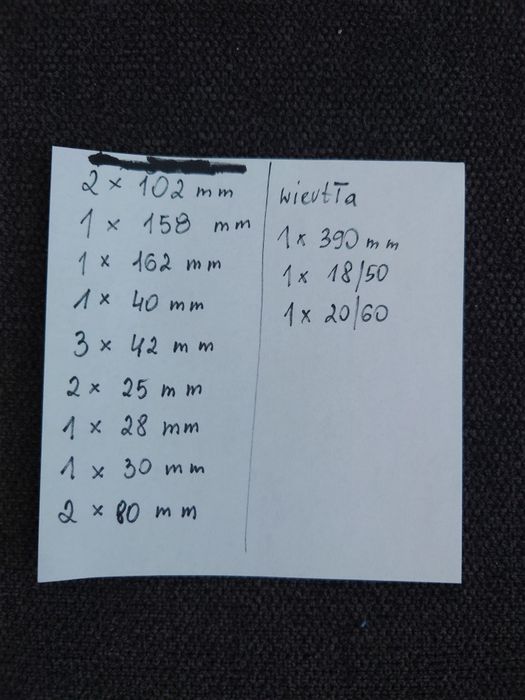 2 x 102 mm
1 x 158 mm
1 x 162 mm
1 x 40 mm
3 x 42 mm
2 x 25 mm
1 x 28 mm
1 x 30 mm
2 x 80 mm
wiertła
1 x 390 mm
1 x 18/50
1 x 20/60